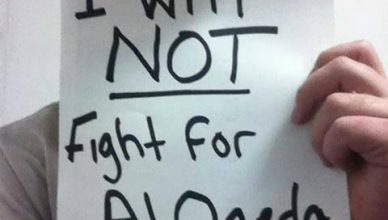 I Will
NOT
Fight for
Al Qaeda